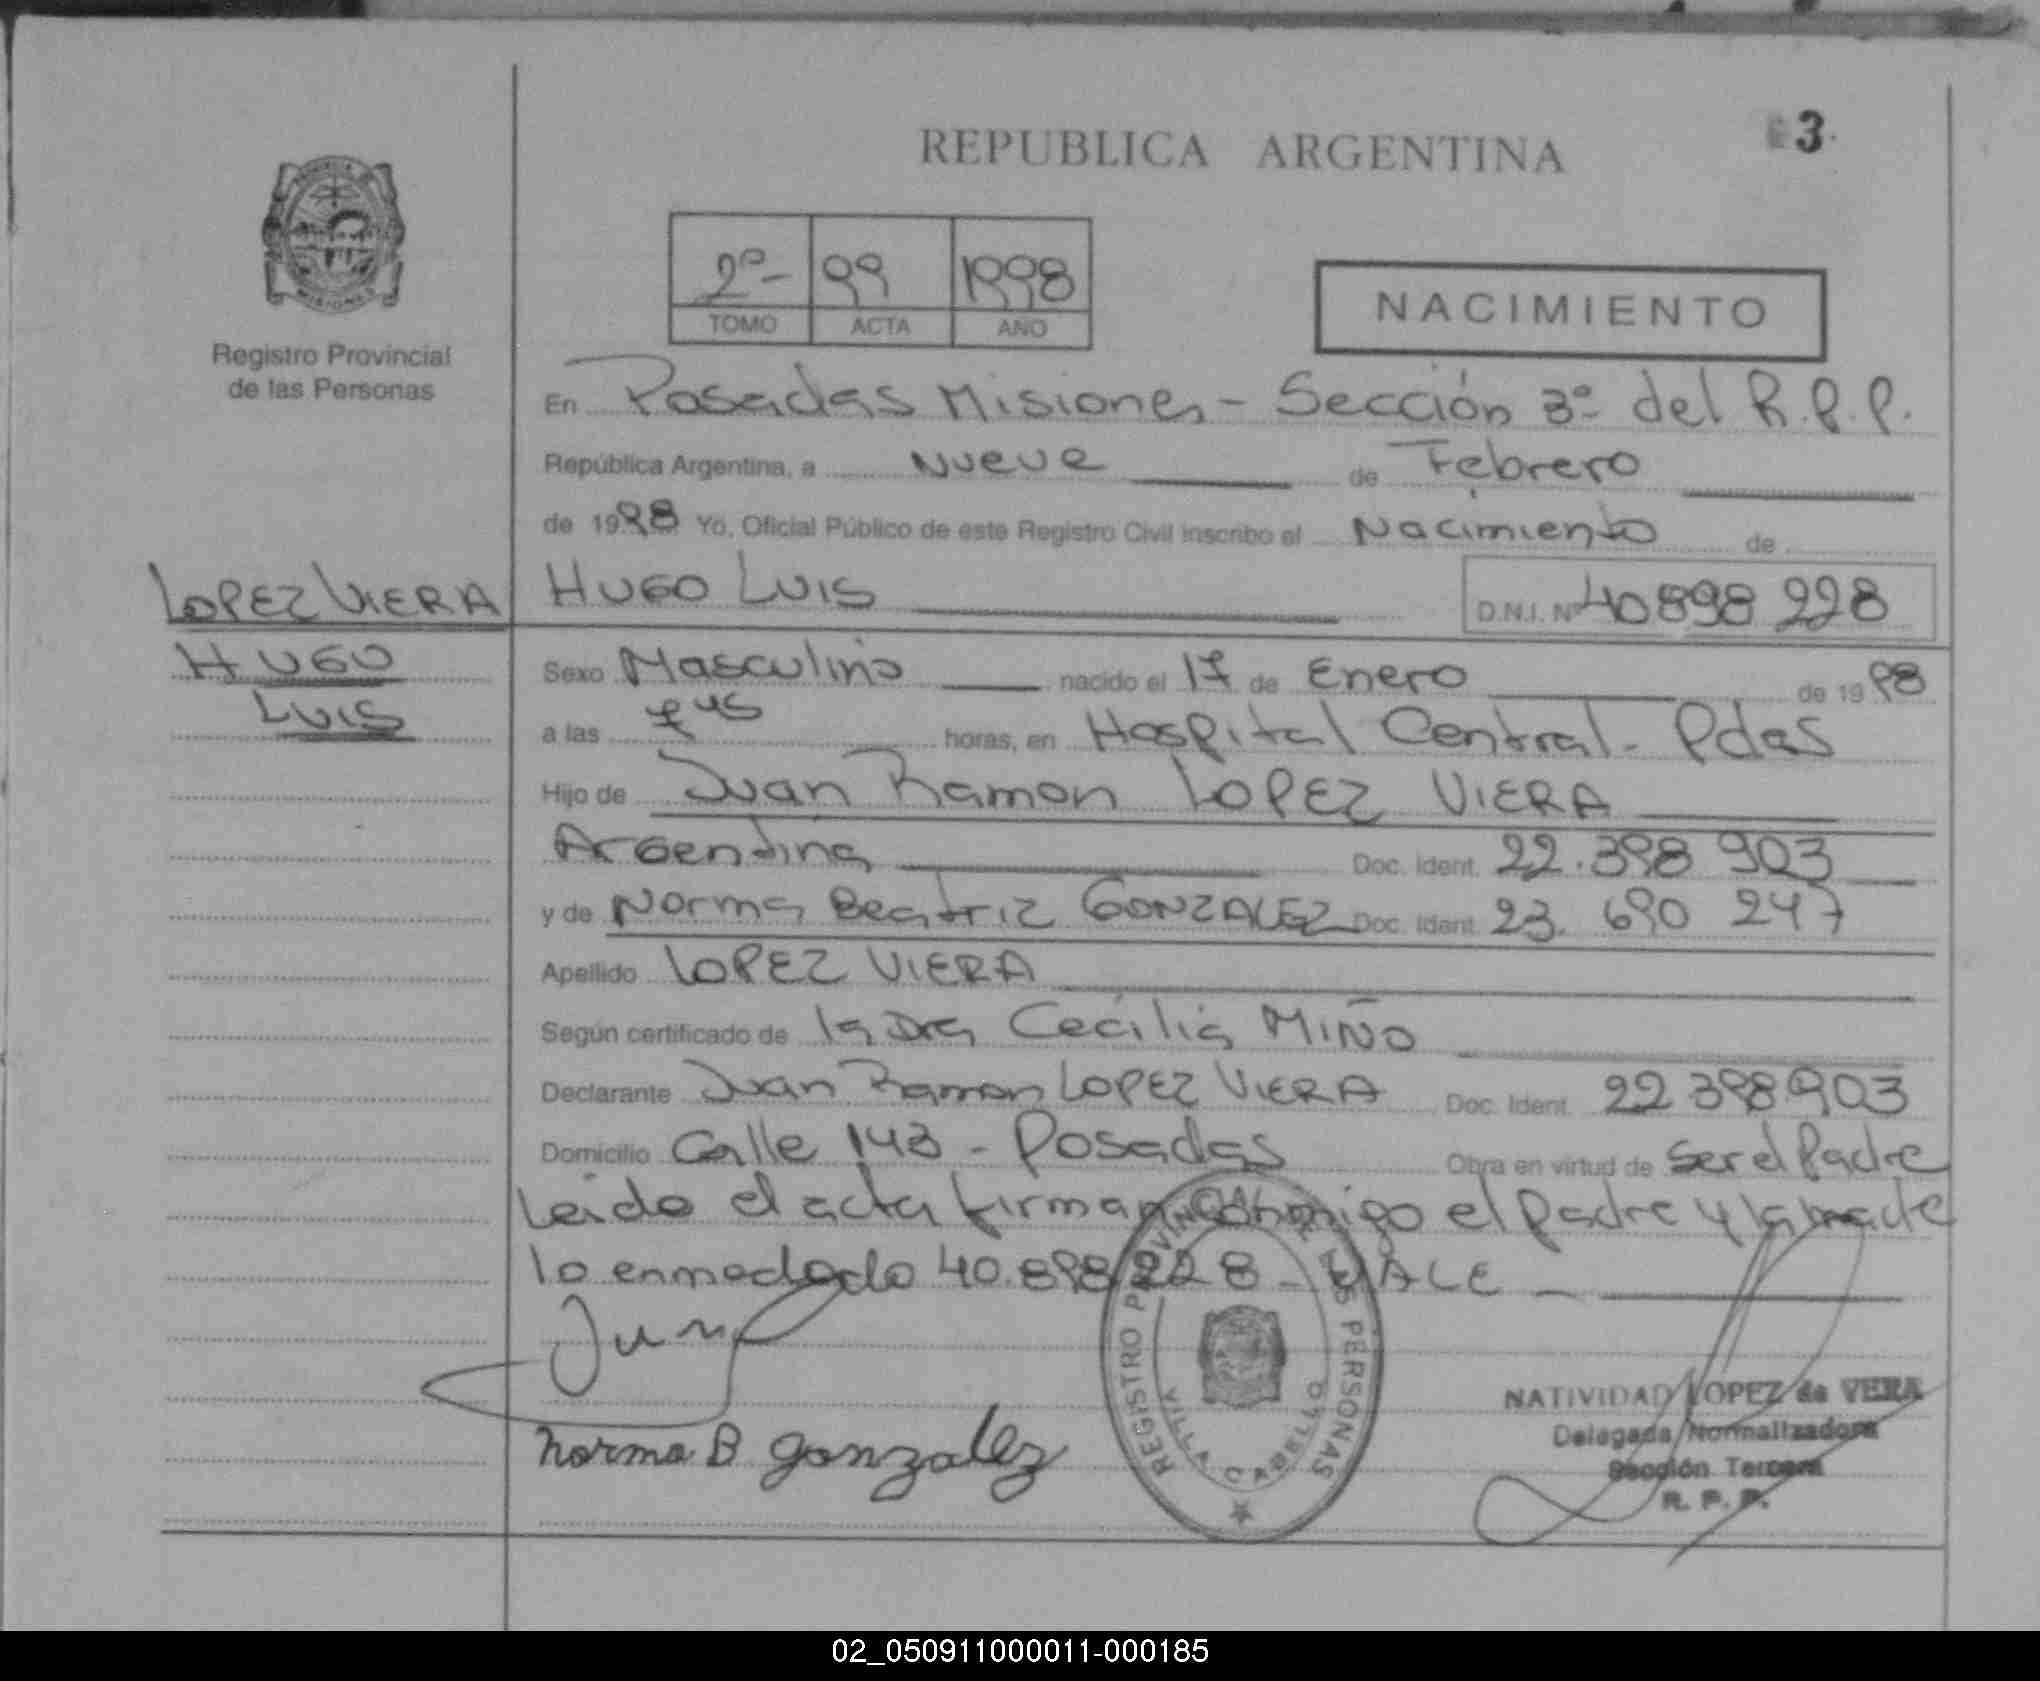 REPUBLICA ARGENTINA
3
Registro Provincial
de las Personas
2º- 99 1998
TOMO ACTA AÑO
NACIMIENTO
En Posadas Misiones - Sección 3º del R.P.P.
República Argentina, a Nueve de Febrero
de 1998 Yo, Oficial Público de este Registro Civil inscribo el Nacimiento de
LOPEZ VIERA HUGO LUIS D.N.I. Nº 40.898 228
HUGO
LUIS
Sexo Masculino nacido el 17 de Enero de 1998
a las 7 45 horas, en Hospital Central - Pdas
Hijo de Juan Ramon LOPEZ VIERA
Argentina Doc. Ident. 22.398 903
y de Norma Beatriz GONZALEZ Doc. Ident. 23. 690 247
Apellido LOPEZ VIERA
Según certificado de la Dra Cecilia MIÑO
Declarante Juan Ramon LOPEZ VIERA Doc. Ident. 22 398 903
Domicilio Calle 143 - Posadas Obra en virtud de Ser el Padre
Leido el acta firman conmigo el padre y la madre
lo enmedado 40.898 228 - VALE
Juan
Norma B gonzalez
REGISTRO PROVINCIAL DE LAS PERSONAS
VILLA CABELLO
NATIVIDAD LOPEZ de VERA
Delegada Normalizadora
Sección Tercera
R. P. P.
02_050911000011-000185